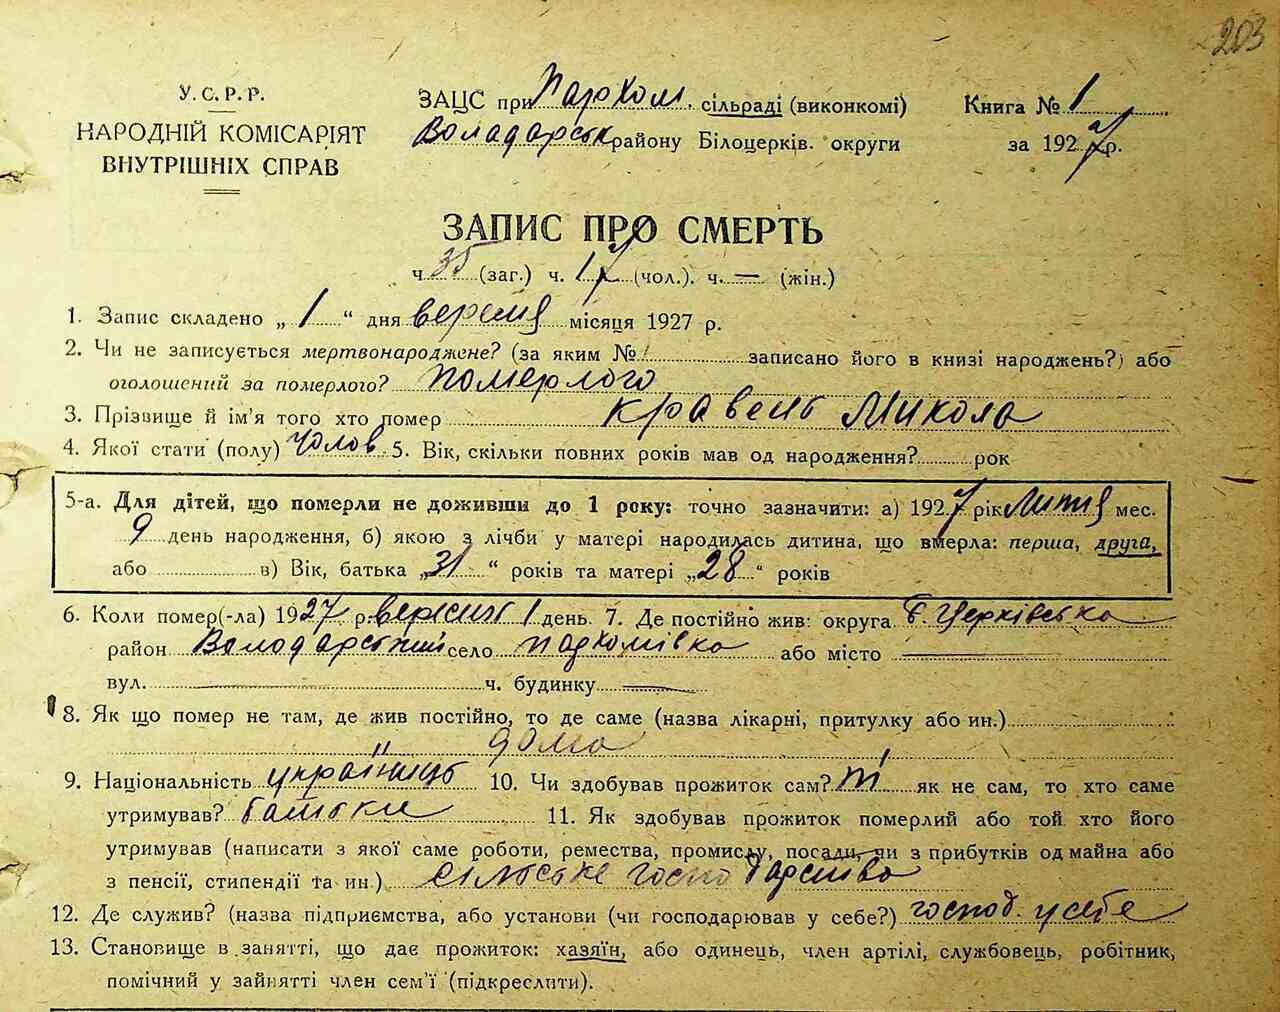 203
У.С.Р.Р.
НАРОДНІЙ КОМІСАРІЯТ
ВНУТРІШНІХ СПРАВ
ЗАЦС при Пархом. сільраді (виконкомі)
Володарськ району Білоцерків. округи
Книга № 1
за 1927 р.
ЗАПИС ПРО СМЕРТЬ
ч 35 (заг.) ч. 17 (чол.). ч. — (жін.)
1. Запис складено „ 1 “ дня вересня місяця 1927 р.
2. Чи не записується мертвонароджене? (за яким № записано його в книзі народжень?) або
оголошений за померлого? померлого
3. Прізвище й ім'я того хто помер Кравець Микола
4. Якої стати (полу) чолов 5. Вік, скільки повних років мав од народження? рок
5-а. Для дітей, що померли не доживши до 1 року: точно зазначити: а) 1927 рік Липня мес.
9 день народження, б) якою з лічби у матері народилась дитина, що вмерла: перша, друга,
або в) Вік, батька „31“ років та матері „28“ років
6. Коли помер(-ла) 1927 р. вересня 1 день. 7. Де постійно жив: округа Б. Церківська
район Володарський село Пархомівка або місто —
вул. — ч. будинку —
8. Як що помер не там, де жив постійно, то де саме (назва лікарні, притулку або ин.)
" дома
9. Національність українець 10. Чи здобував прожиток сам? ні як не сам, то хто саме
утримував? батьки 11. Як здобував прожиток померлий або той хто його
утримував (написати з якої саме роботи, ремества, промислу, посади, чи з прибутків од майна або
з пенсії, стипендії та ин.) сільське господарство
12. Де служив? (назва підприємства, або установи (чи господарював у себе?) господ. у себе
13. Становище в занятті, що дає прожиток: хазяїн, або одинець, член артілі, службовець, робітник,
помічний у зайнятті член сем'ї (підкреслити).